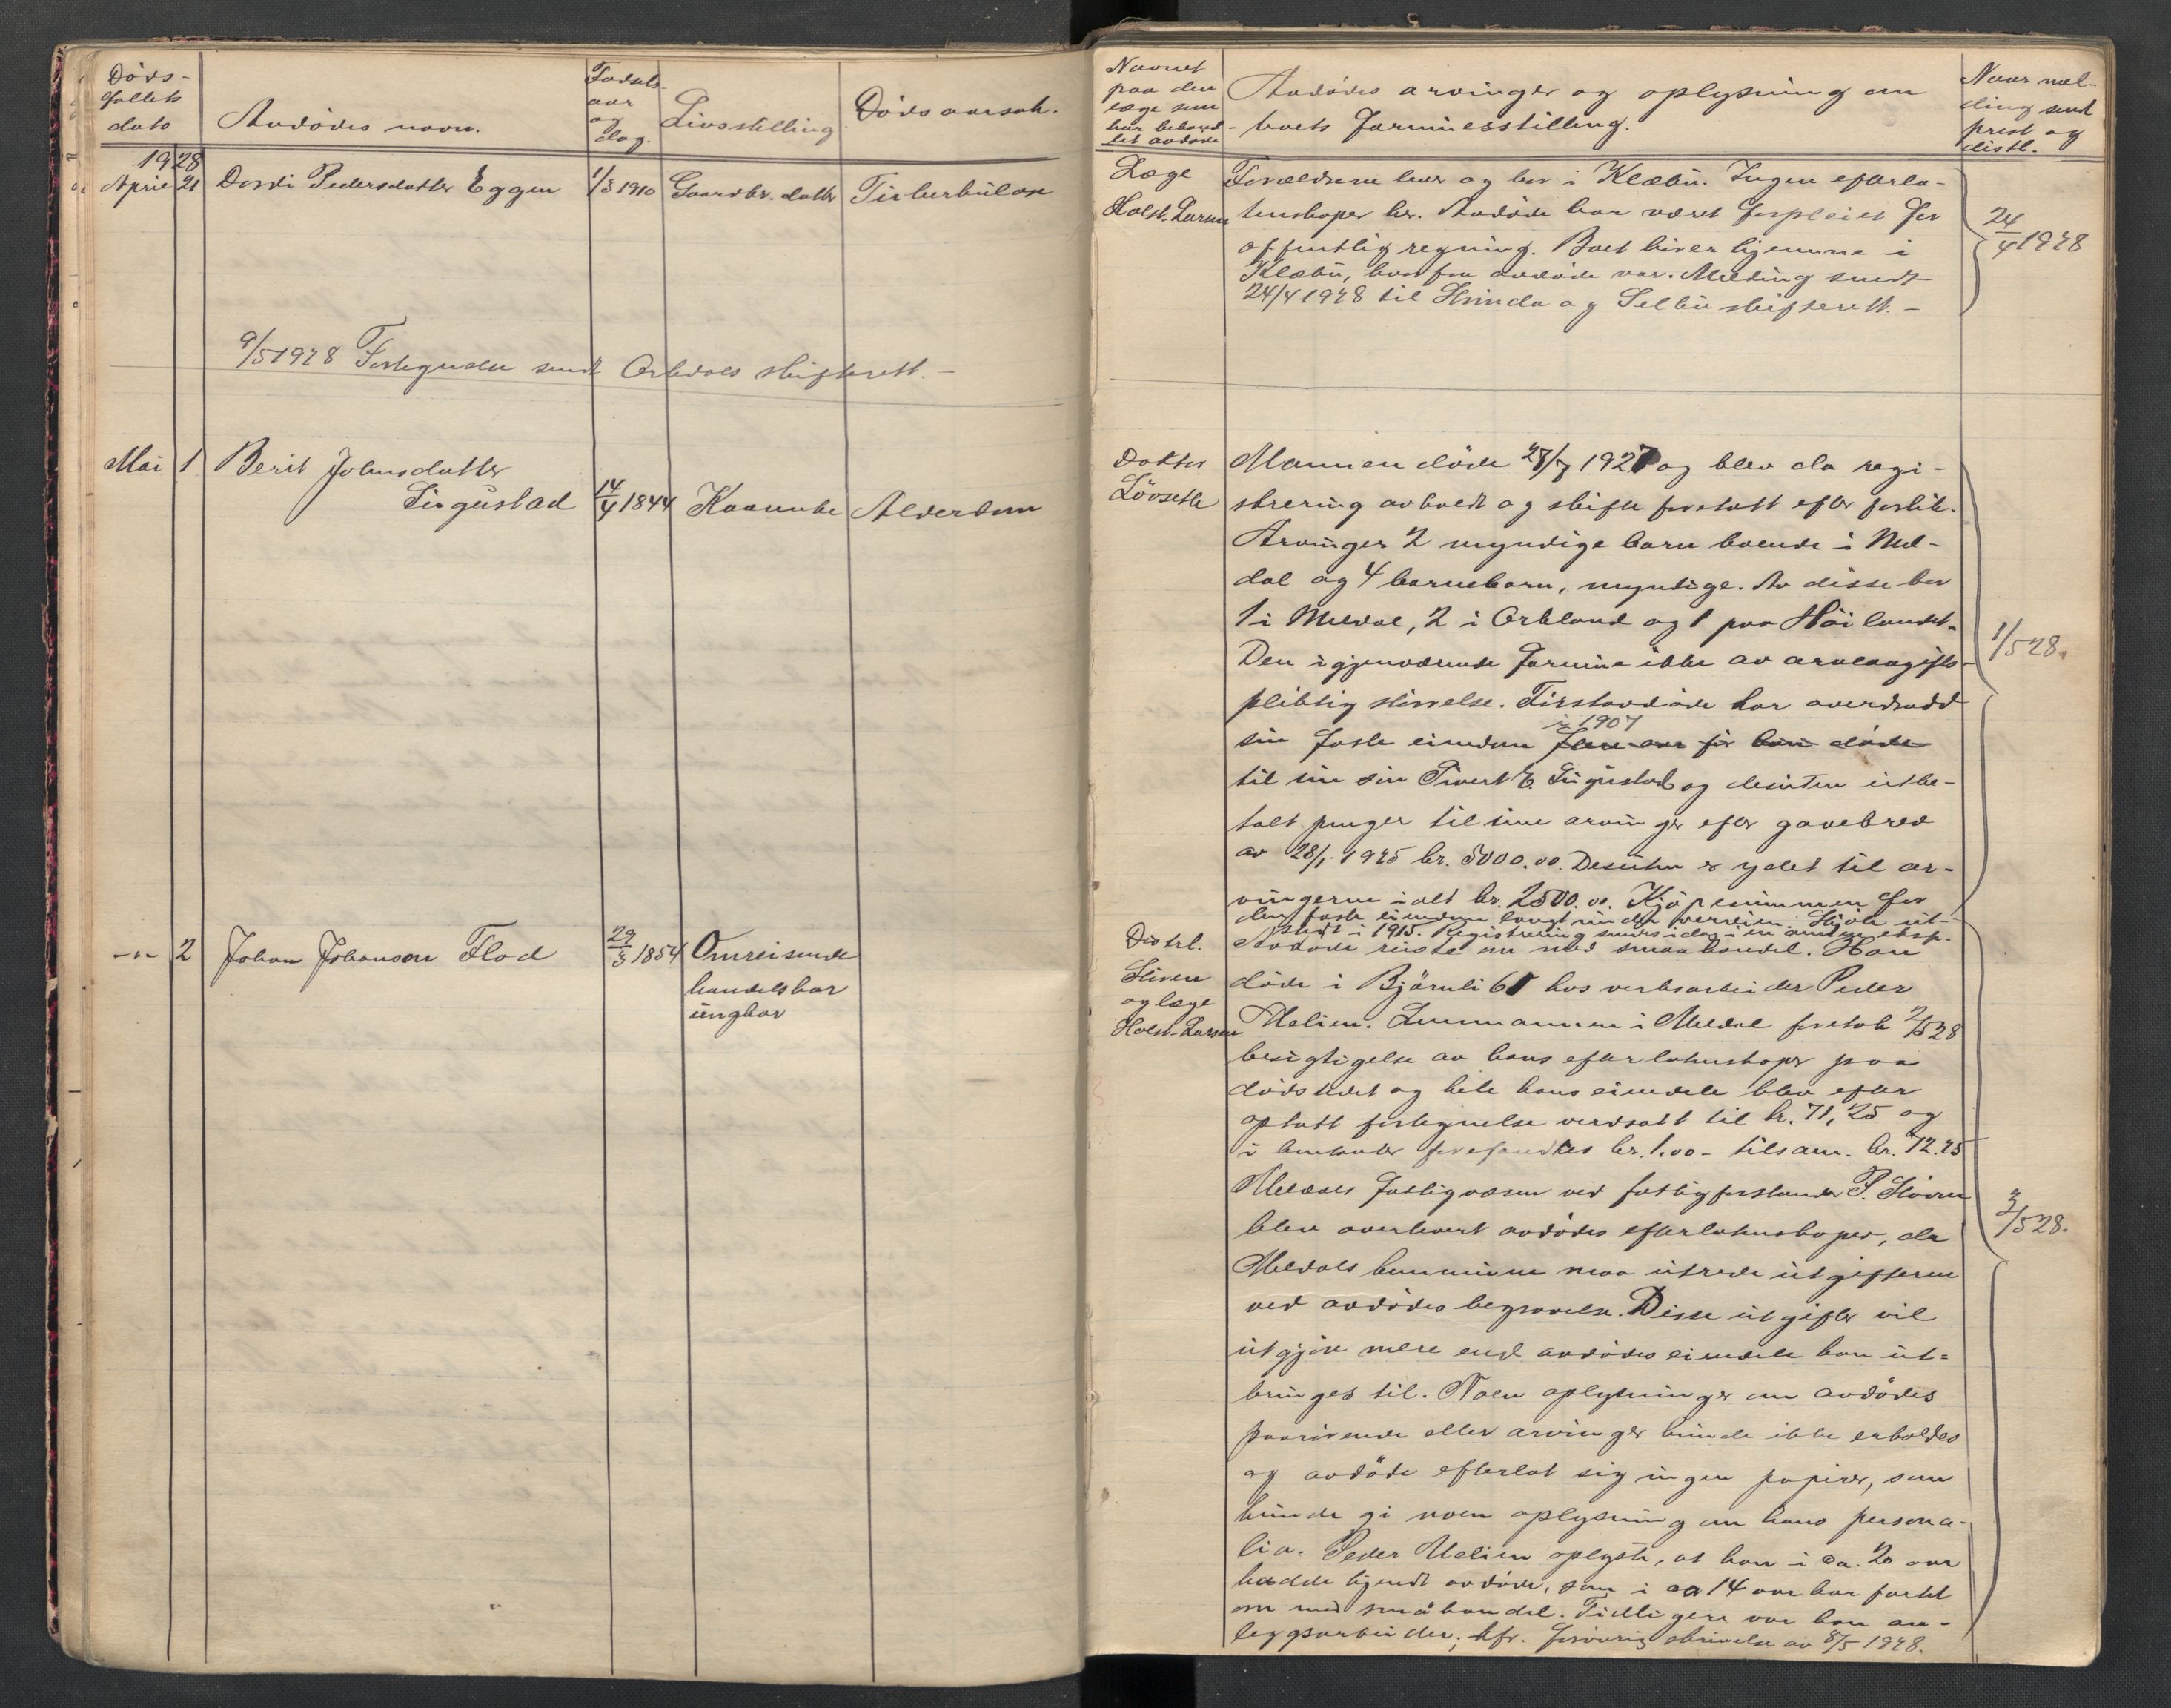 Döds-
fallets
dato
Avdödes navn.
Födsels-
aar
og
dag.
Livsstilling
Dödsaarsak.
1928
April 21 Dordi Pedersdatter Eggen 1/3 1910 Gaardbr. datter Tuberkulose
9/5 1928 Fortegnelse sendt Orkdals skifterett. -
Mai 1 Berit Johnsdatter
Ligüstad 14/4 1844 Kaarenke Alderdom
-"- 2 Johan Johanson Flod 29/3 1854 Omreisende
handelskar
üngkar
Navnet
paa den
læge som
har behand-
let avdøde
Avdödes arvinger og oplysning om
boets formuesstilling.
Naar mel-
ding sendt
prest og
distl.
Læge
Holst-Larsen
Forældrene lever og bor i Klæbü. Ingen efterla-
tenskaper her. Avdöde har været forpleiet for
offentlig regning. Boet hörer hjemme i
Klæbü, hvorfra avdöde var. Melding sendt
24/4 1928 til Strinda og Selbü skifterett. -
24/4 1928
Doktor
Lövseth
Mannen döde 27/7 1927 og blev da regi-
strering avholdt og skifte foretatt efter forlik.
Arvinger 2 myndige barn boende i Mel-
dal og 4 barnebarn, myndige. Av disse bor
1 i Meldal, 2 i Orkland og 1 paa Höilandet.
Den igjenværende formue ikke av arveavgifts-
pliktig störrelse. Förstavdöde har averdradd
i 1907
sin faste eiendom för han döde
til sin sön Sivert E. Ligüstad og desüten ütbe-
talt penger til sine arvinger efter gavebrev
av 28/1 1925 kr. 5000.00. Desüten er ydet til ar-
vingerne i alt kr. 2500.00. Kjöpesümmen for
den faste eiendom langt ünder verdien. Skjöte üt-
stedt i 1915. Registrering sendes idag i en anden eksp.
1/5 28.
Distrl.
Stören
og læge
Holst-Larsen
Avdöde reiste om med smaahandel. Han
döde i Björnli 61 hos verksarbeider Peder
Melien. Lensmannen i Meldal foretok 2/5 28
besigtigelse av hans efterlatenskaper paa
dödsstedet og hele hans eiendele blev efter
optatt fortegnelse verdsatt til kr. 71,25 og
i kontanter forefandtes kr. 1.00 - tilsam. kr. 72.25
Meldals fattigvæsen ved fattigforstander P.
blev averlevert avdödes efterlatenskaper, da
Meldals kommüne maa ütrede ütgifterne
ved avdödes begravelse. Disse ütgifter vil
ütgjöre mere end avdödes eiendele kan üt-
bringes til. Noen oplysninger om avdödes
paarörende eller arvinger künde ikke erholdes
og avdöde efterlot sig ingen papirer, som
künde gi noen oplysning om hans persona-
lia. Peder Melien oplyste, at han i ca. 20 aar
hadde kjendt avdöde, som i ca 14 aar har farttet
om med småhandel. Tidligere var han an-
leggsarbeider, kfr. forövrig skrivelse av 8/5 1928.
3/5 28.